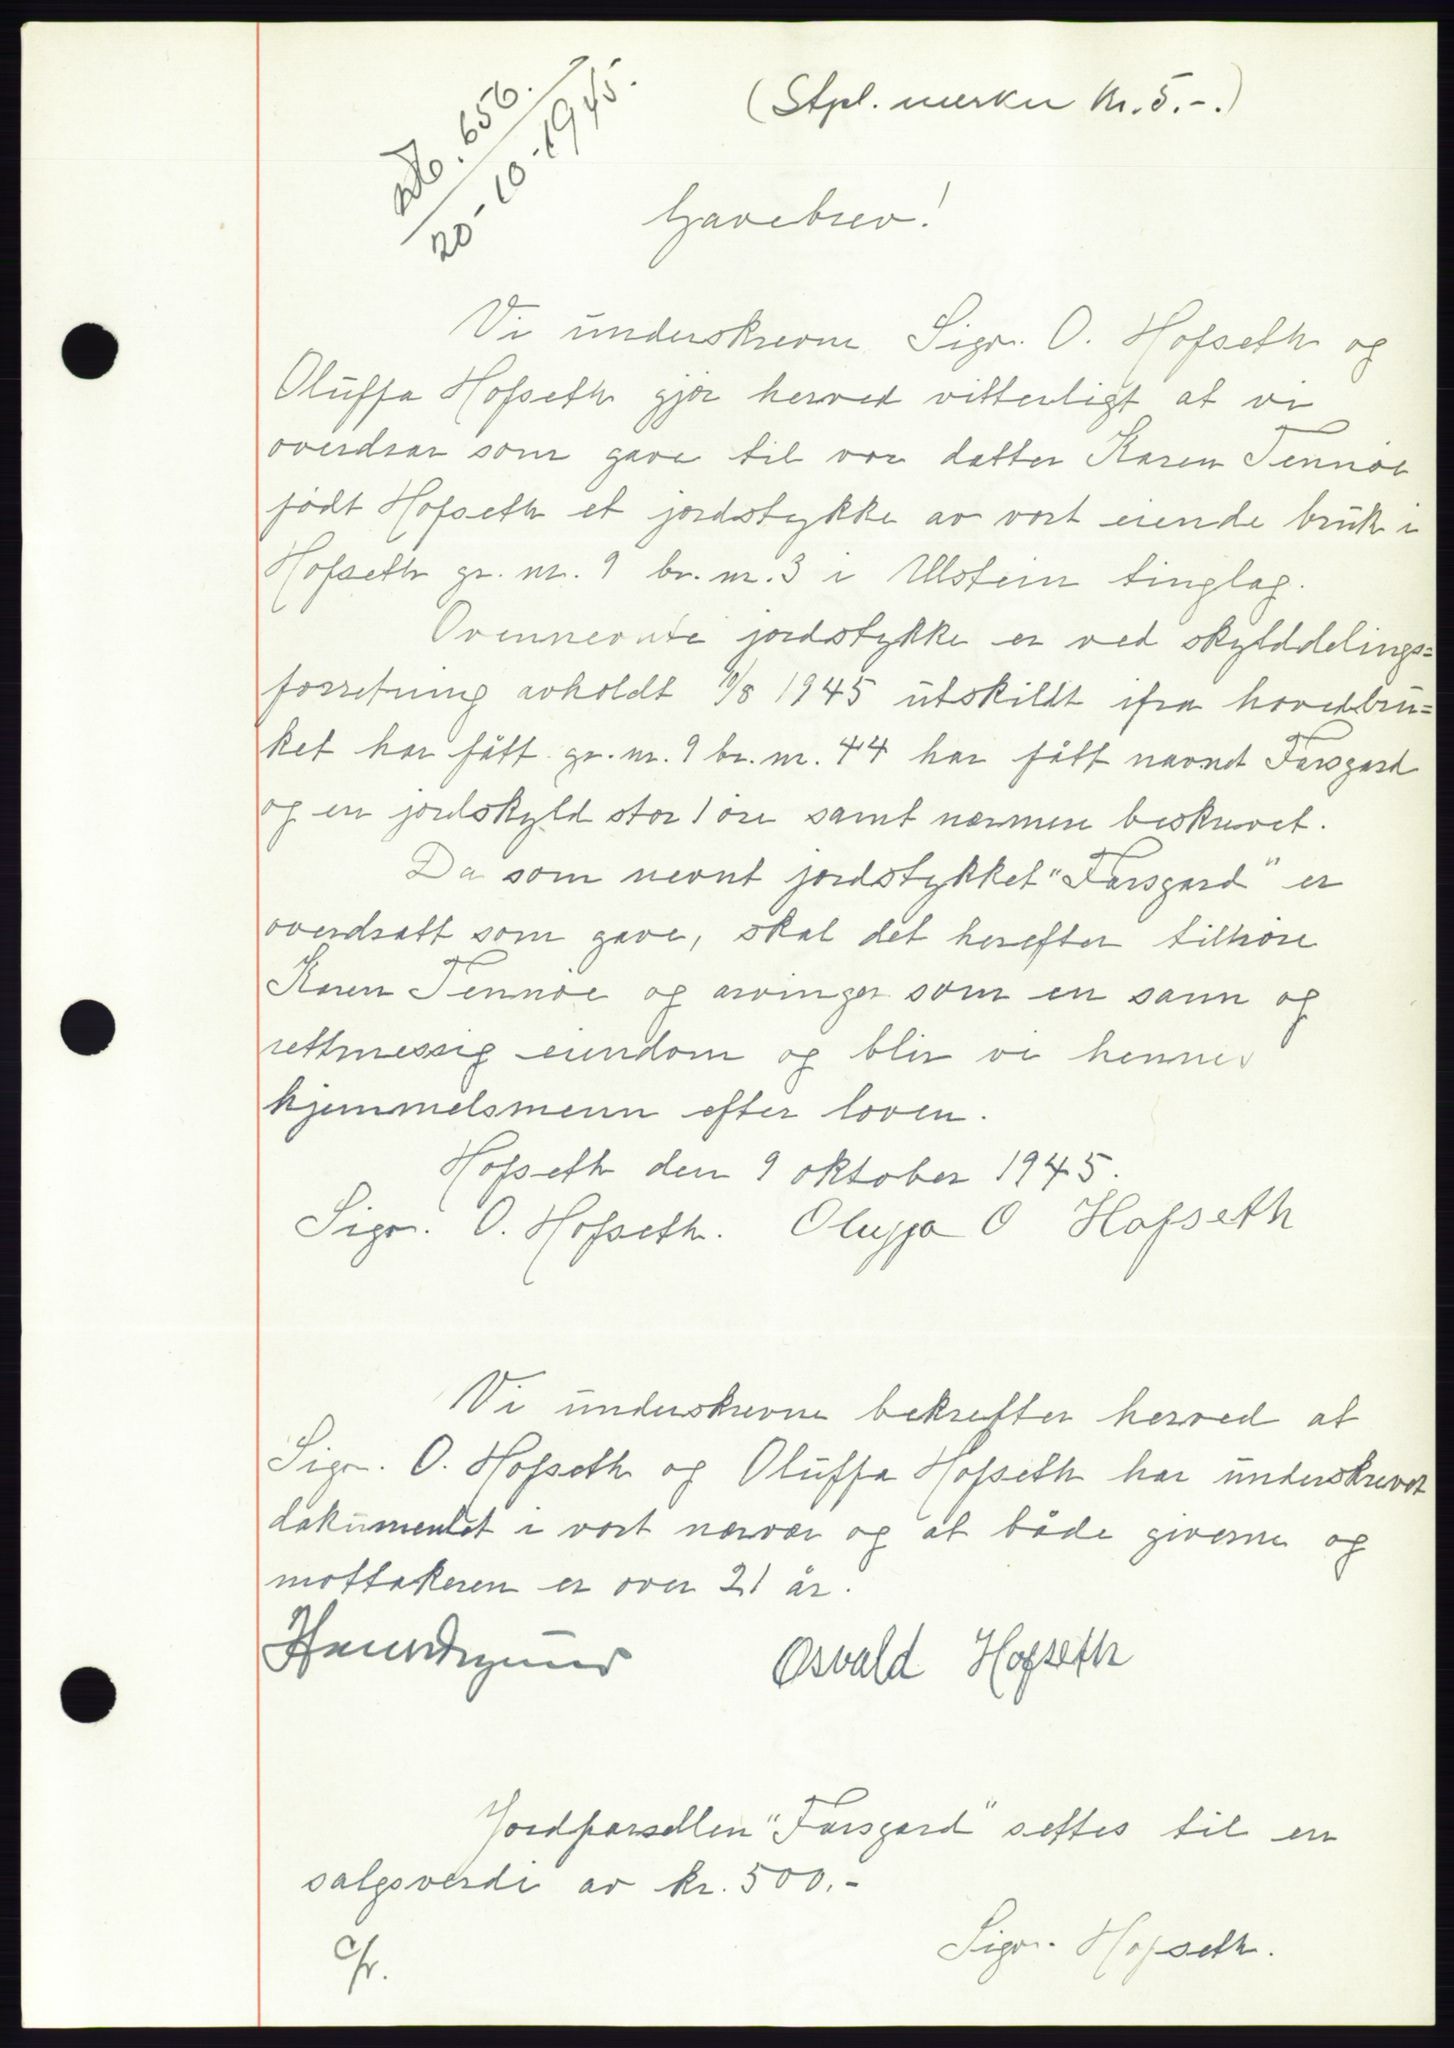 nb. 656.
20-10-1945.
(Stpl. merker kr. 5.-.)
Gavebrev!
Vi underskrevne Sigv. O. Hofseth og
Oluffa Hofseth gjør herved vitterligt at vi
overdrar som gave til vor datter Karen Tennøe
født Hofseth et jordstykke av vort eiende bruk i
Hofseth gr. nr. 9 br. nr. 3 i Ulstein tinglag.
Ovennevnte jordstykke er ved skylddelings=
forretning avholdt 10/8 1945 utskildt ifra hovedbru=
ket har fått gr. nr. 9 br. nr. 44 har fått navnet Farsgard
og en jordskyld stor 1 øre samt nærmere beskrevet.
Da som nevnt jordstykket "Farsgard" er
overdratt som gave, skal det herefter tilhøre
Karen Tennøe og arvinger som en sann og
rettmessig eiendom og blir vi hennes
hjemmelsmenn efter loven.
Hofseth den 9 oktober 1945.
Sigv. O. Hofseth. Oluffa O Hofseth
Vi underskrevne bekrefter herved at
Sigv. O. Hofseth og Oluffa Hofseth har underskrevet
dokumentet i vort nærvær og at både giverne og
mottakeren er over 21 år.
Osvald Hofseth
Jordparsellen "Farsgard" settes til en
salgsverdi av kr. 500.-
Sigv. Hofseth.